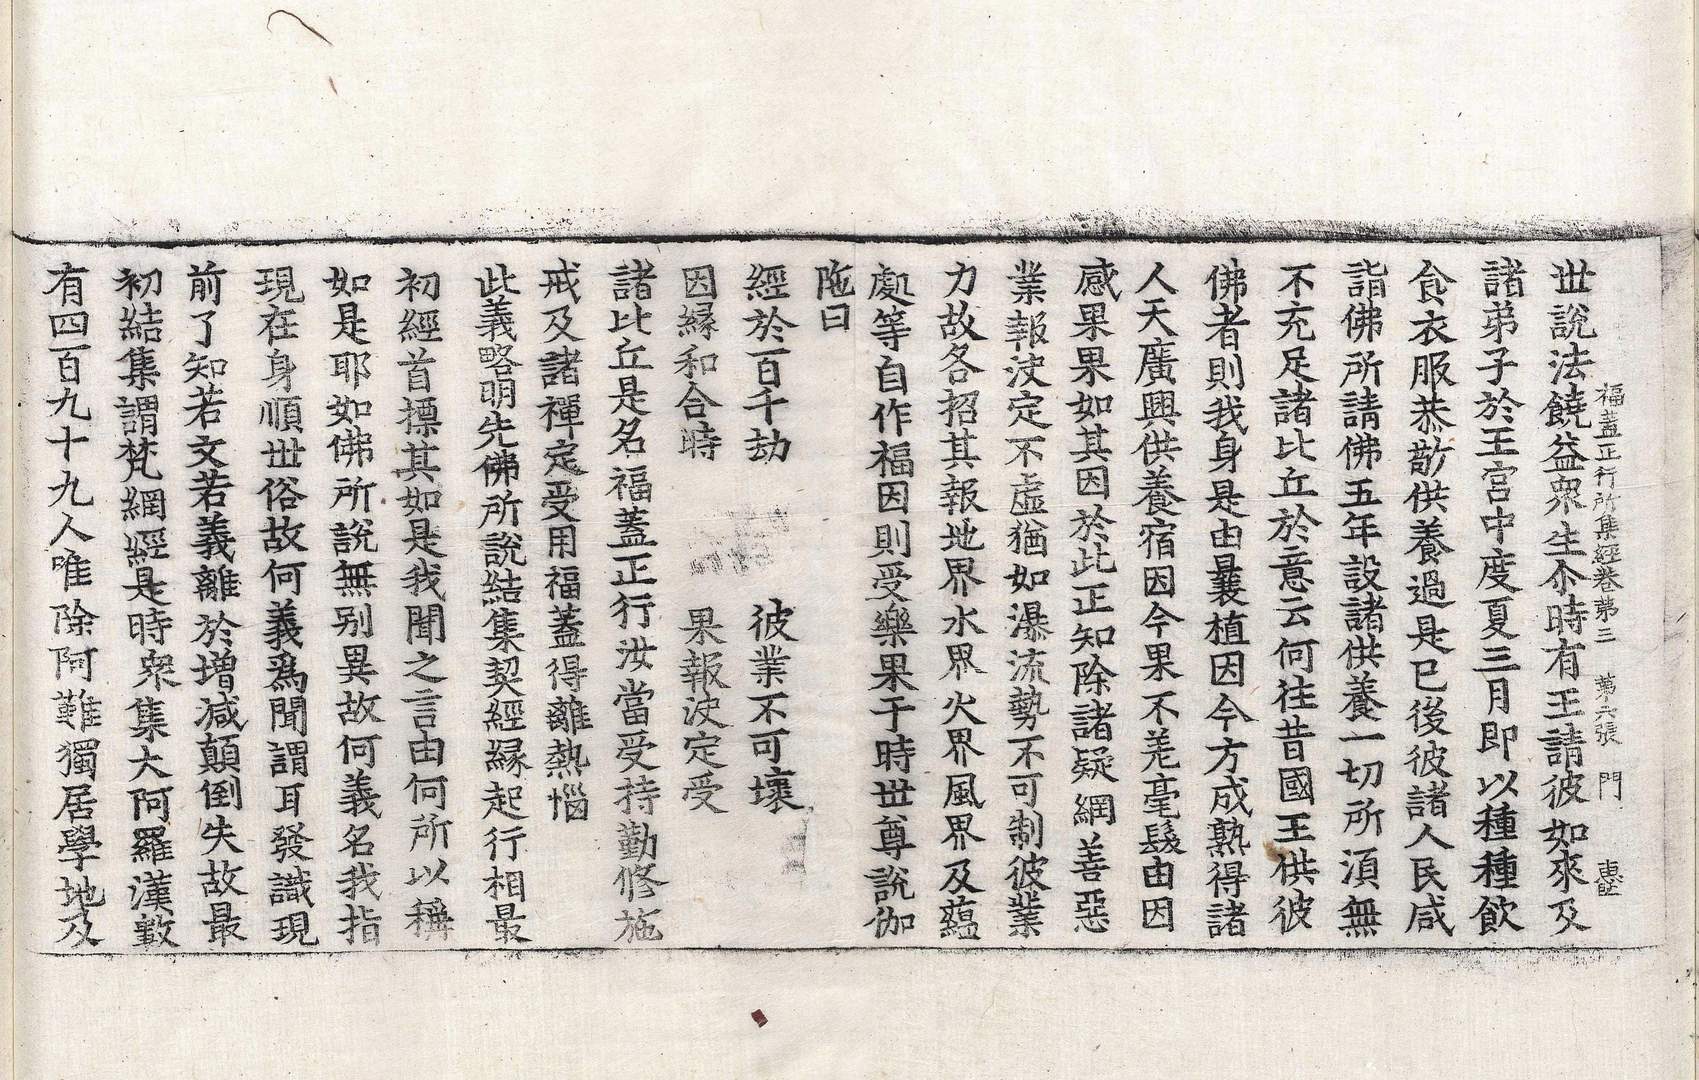 福蓋正行所集經卷第三　第六張　門
世說法饒益衆生尒時有王請彼如來及
諸弟子於王宮中度夏三月即以種種飲
食衣服恭敬供養過是已後彼諸人民咸
詣佛所請佛五年設諸供養一切所湏無
不充足諸比丘於意云何往昔國王供彼
佛者則我身是由曩植因今方成熟得諸
人天廣興供養宿因今果不差毫髮由因
感果果如其因於此正知除諸疑網善惡
業報決定不虛猶如瀑流勢不可制彼業
力故各招其報地界水界火界風界及蘊
處等自作福因則受樂果于時世尊說伽
陁曰
經於百千劫　彼業不可壞
因緣和合時　果報決定受
諸比丘是名福蓋正行汝當受持勤修施
戒及諸禪定受用福蓋得離熱惱
此義略明先佛所說結集契經緣起行相最
初經首摽其如是我聞之言由何所以稱
如是耶如佛所說無別異故何義名我指
現在身順世俗故何義爲聞謂耳發識現
前了知若文若義離於增減顛倒失故最
初結集謂梵網經是時衆集大阿羅漢數
有四百九十九人唯除阿難獨居學地及